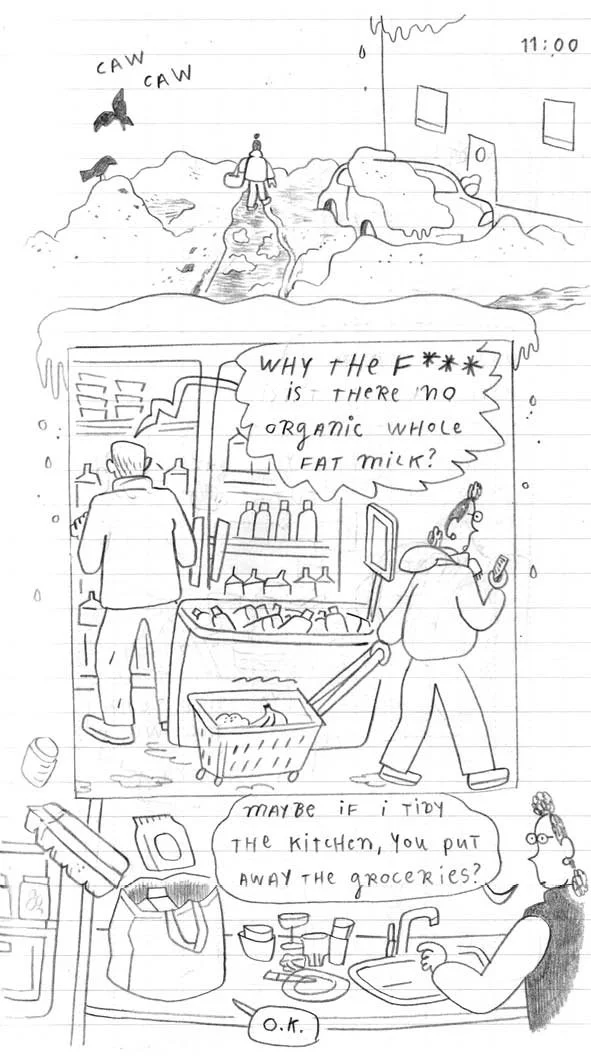 11:00
CAW
CAW
WHY THE F***
IS THERE NO
ORGANIC WHOLE
FAT MILK?
MAYBE IF I TIDY
THE KITCHEN, YOU PUT
AWAY THE GROCERIES?
O.K.